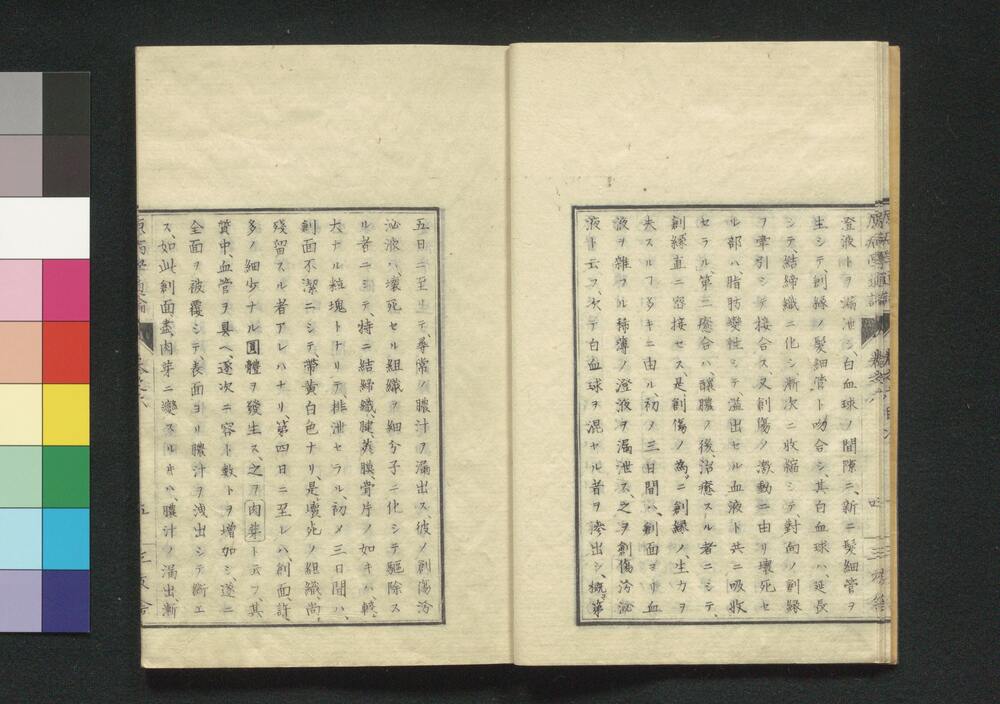 澄液トヲ漏泄シ、白血球ノ間隙ニ、新ニ髪細管ヲ
生シテ、創縁ノ髪細管ト吻合シ、其白血球ハ、延長
シテ、結締織ニ化シ漸次ニ收縮シテ、對向ノ創縁
ヲ牽引シテ接合ス、又創傷ノ激動ニ由リ壊死セ
ル部ハ、脂肪變性シテ、溢出セル血液ト共ニ吸收
セラル、第二癒合ハ、釀膿ノ後、治癒スル者ニシテ、
創縁直ニ密接セス、是創傷ノ為ニ創縁ノ、生力ヲ
失スルヿ多キニ由ル、初メ三日間ハ、創面ヨリ血
液ヲ雜フル稀薄ノ澄液ヲ漏泄ス、之ヲ創傷汾泌
液ト云フ、次テ白血球ヲ混セル者ヲ滲出シ、概第
五日ニ至リテ、尋常ノ膿汁ヲ漏出ス、彼ノ創傷汾
泌液ハ、壊死セル組織ヲ細分子ニ化シテ驅除ス
ル者ニシテ、特ニ結締織、腱、英膜骨片ノ如キハ、較
大ナル粒塊トナリテ、排泄セラル、初メ三日間ハ、
創面不潔ニシテ、帶黄白色ナリ、是壊死ノ組織尚
殘留スル者アレハナリ、第四日ニ至レハ創面、許
多ノ細少ナル圓體ヲ發生ス、之ヲ肉芽ト云フ、其
質中、血管ヲ具ヘ、逐次ニ容ト數トヲ增加シ、遂ニ
全面ヲ被覆シテ、表面ヨリ膿汁ヲ洩出シテ断エ
ス、如此創面、盡、肉芽ニ變スルキハ、膿汁ノ漏出漸